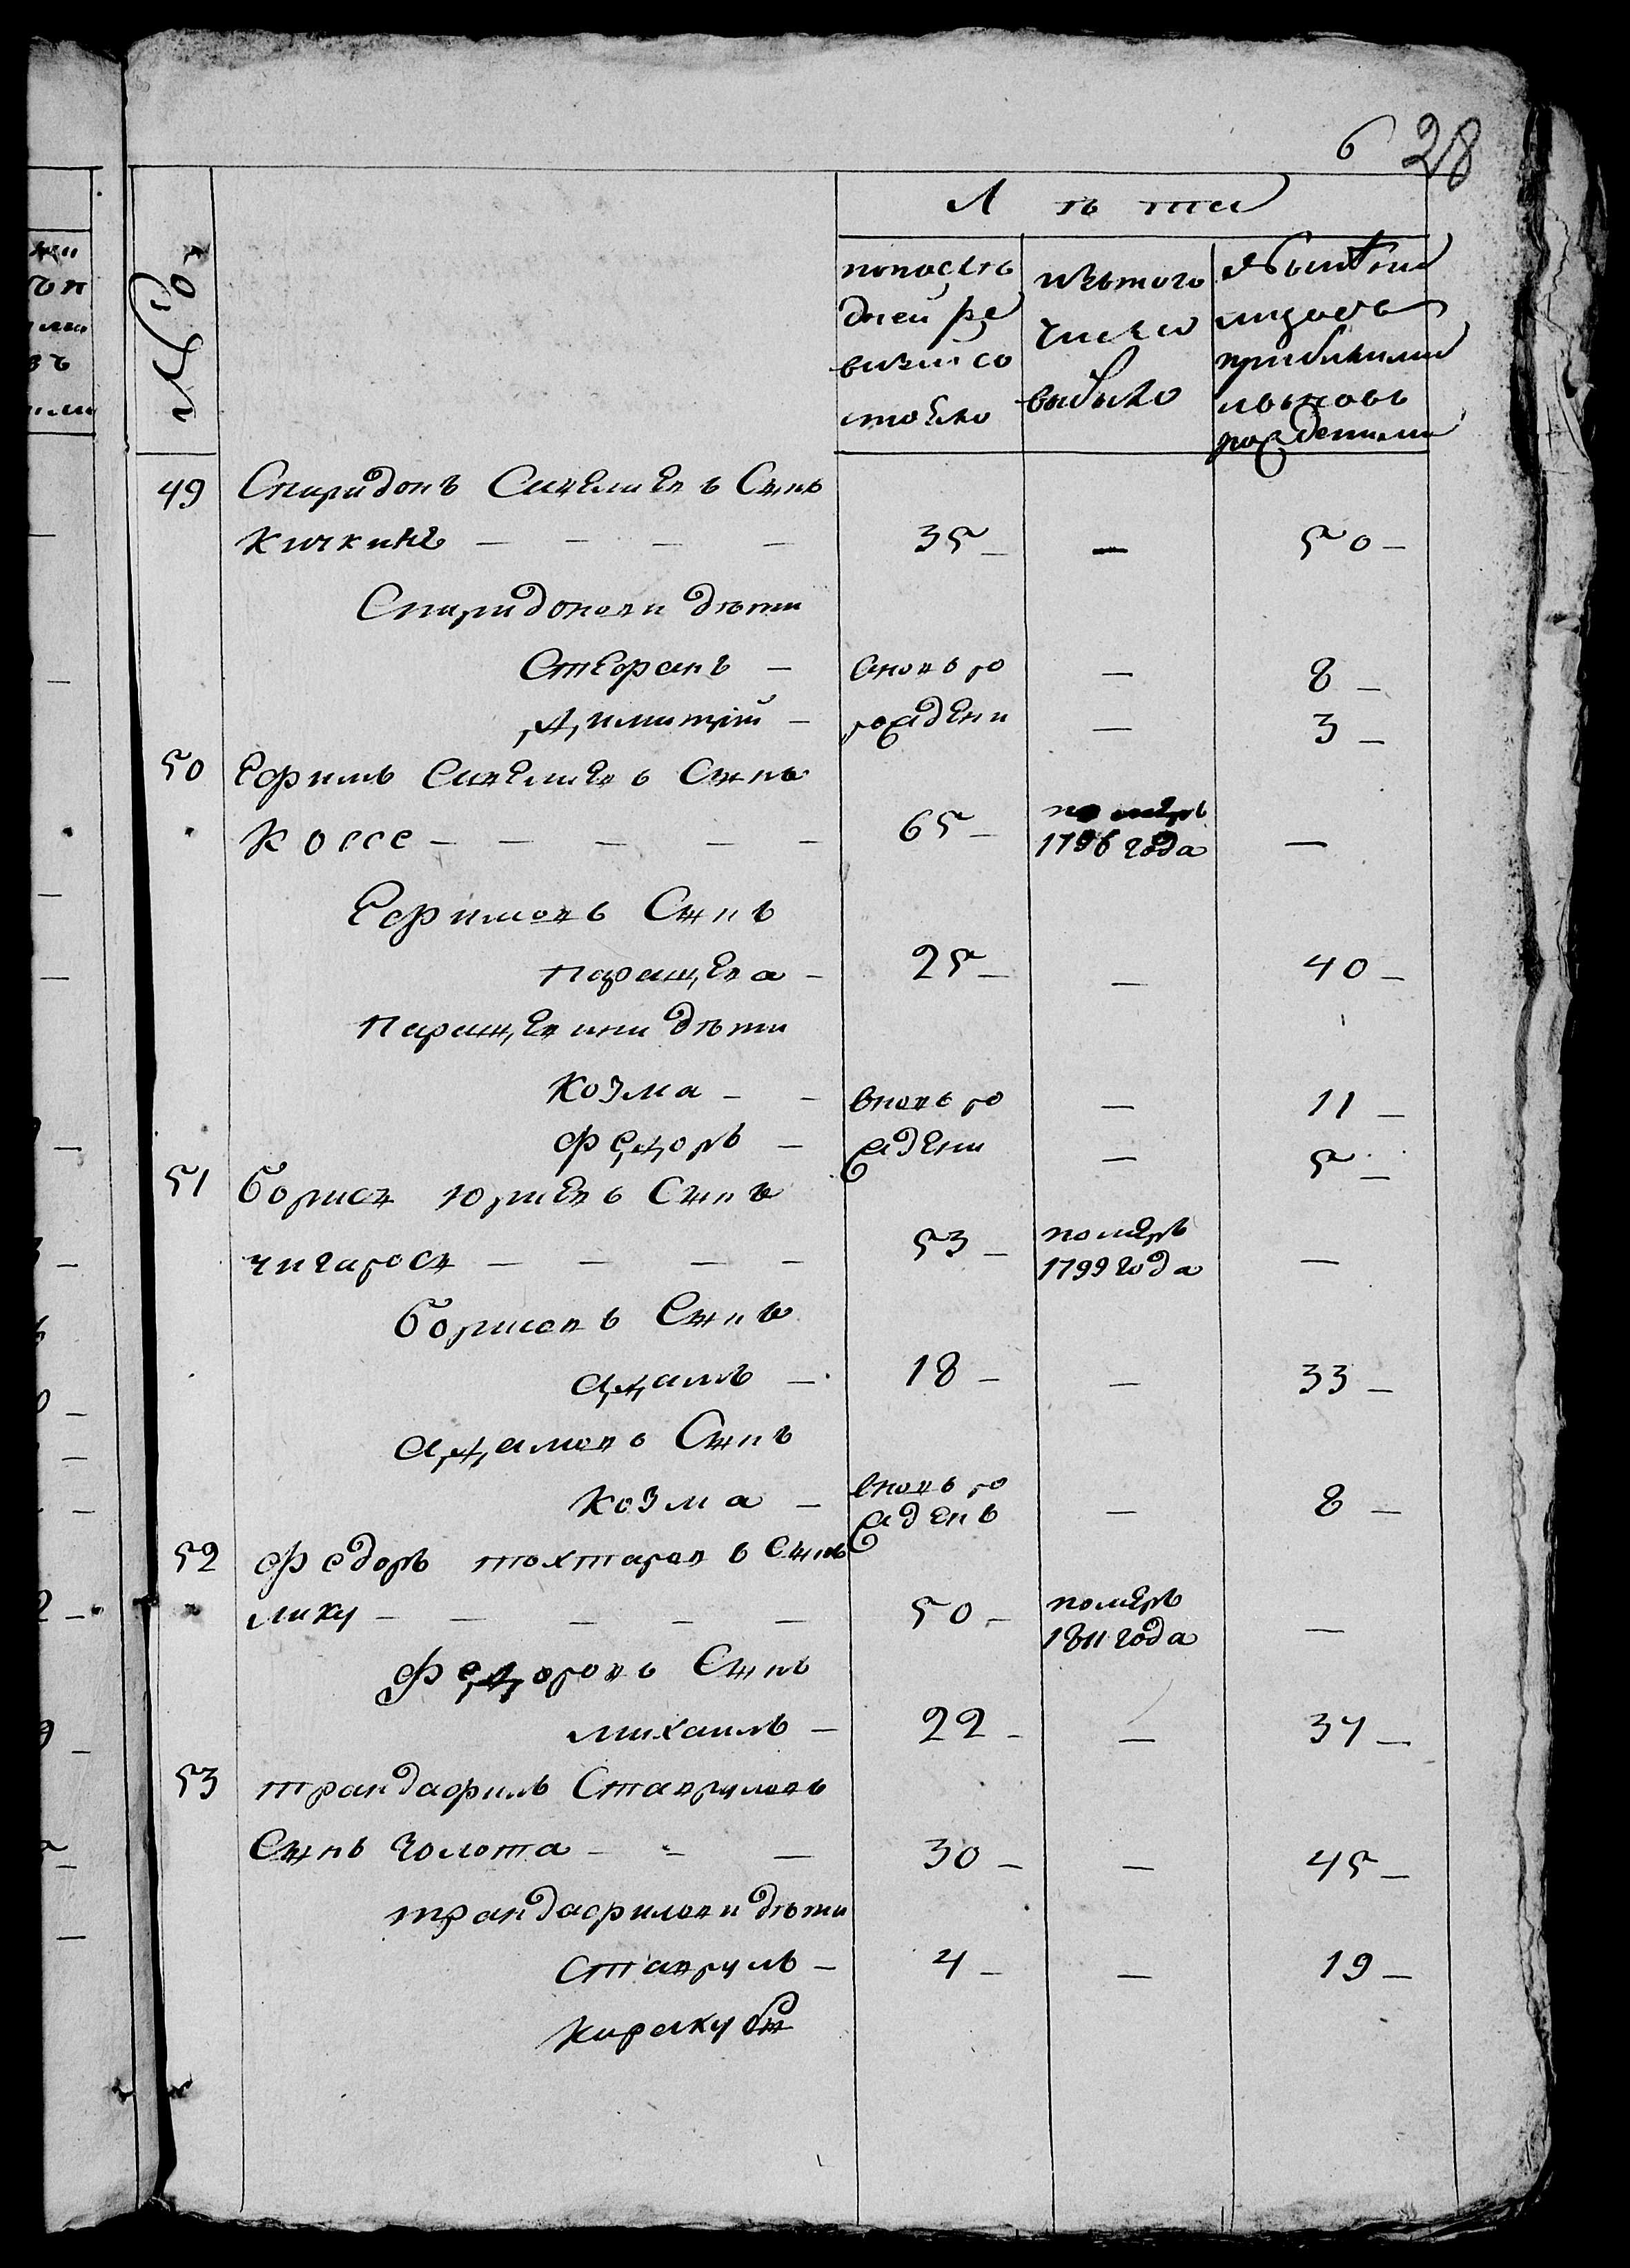 6 28
№
Лѣта
попослѣ
дней ре
визіи со
стояло
изътого
числа
выбыло
нынѣ
налицо съ
прибылыми
и вновь
рожденными
49 Спиридонъ Савельевъ Сынъ
кичкинѣ — — — — 35 — — 50 —
Спиридоновы дѣти
Стефанъ — вновь ро — 8 —
Димитрій — рождены — 3 —
50 Ефимъ Савельевъ Сынъ
коссе — — — — — 65 — померъ
1796 года —
Ефимовъ Сынъ
паращева — 25 — — 40 —
Паращевины дѣти
Козма — — вновь ро — 11 —
Федоръ — ждены — 5 —
51 борисъ юрьевъ Сынъ
чигаросъ — — — — 53 — померъ
1799 года —
борисовъ Сынъ
адамъ — 18 — — 33 —
адамовъ Сынъ
Козма — вновь ро
жденъ — 8 —
52 Федоръ тохтаровъ Сынъ
лику — — — — — 50 — померъ
1811 года —
Федоровъ Сынъ
михаилъ — 22 — — 37 —
53 трандафилъ Ставруловъ
Сынъ Золота — — — 30 — — 45 —
трандафиловы дѣти
Ставрулъ — 4 — — 19 —